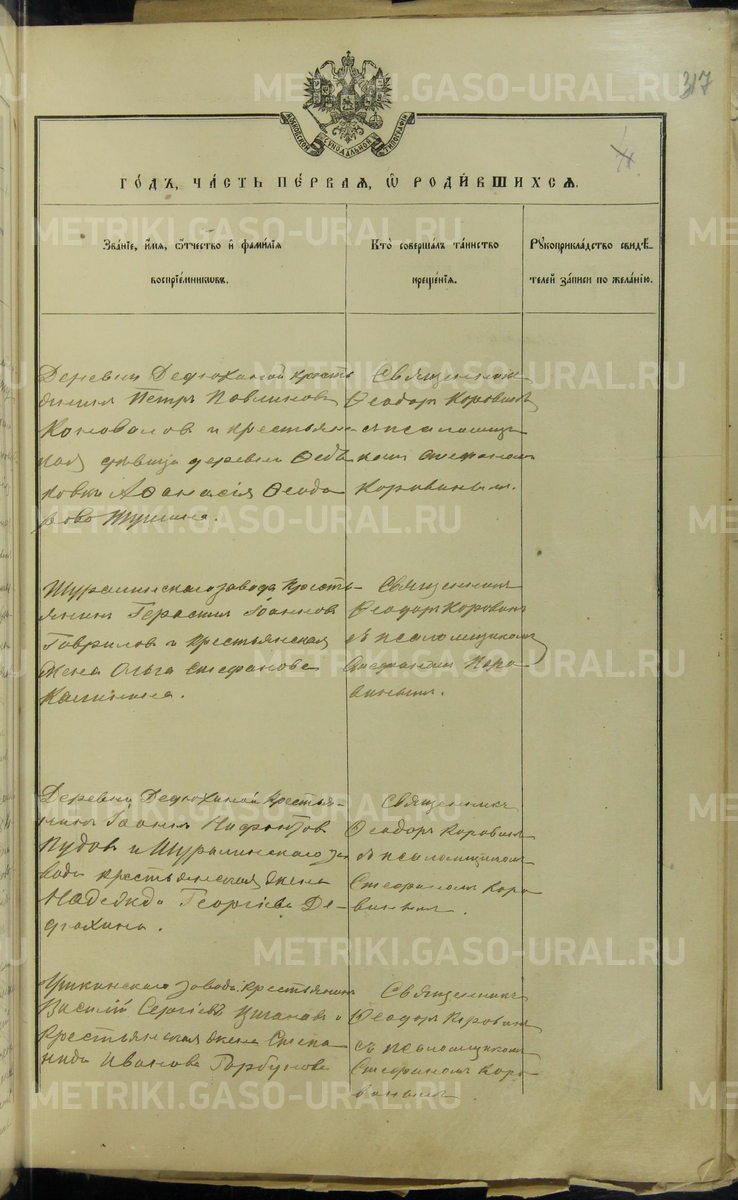 317
МОСКОВСКОЙ СѴНОДАЛЬНОЙ ТИПОГРАФІИ
ГО́ДЪ, ЧА́СТЬ ПЕ́РВАЯ, Ѿ РОДИ́ВШИХСЯ.
Зва́ніе, и́мя, ѻ́тчество и҆ фамѝлія
воспріе́мниковъ.
Кто̀ соверша́лъ та́инство
креще́нія.
Рꙋкоприкла́дство свидѣ́-
телей за́писи по жела́нію.
Деревни Дедюхиной кресть
янинъ Петръ Павлиновъ
Коноваловъ и крестьянс
кая дѣвица деревни Ѳедь
ковки Аѳанасія Ѳеодо
рова
Священникъ
Ѳеодоръ Коровинъ
съ псаломщи
комъ Стефаномъ
Коровинымъ.
Шуралинскаго завода кресть-
янинъ Герасимъ Іоанновъ
Гавриловъ и крестьянская
жена Ольга Стефанова
Калинина.
Священникъ
Ѳеодоръ Коровинъ
съ псаломщикомъ
Стефаномъ Коро
винымъ.
Деревни Дедюхиной крестья-
нинъ Іоаннъ Нифонтовъ
Пудовъ и Шуралинскаго за
вода крестьянская жена
Надежда Георгіева Де-
дюхина.
Священникъ
Ѳеодоръ Коровинъ
съ псаломщикомъ
Стефаномъ Коро
винымъ.
завода крестьянинъ
Василій Сергіевъ и
крестьянская жена Степа
нида Иванова Горбунова
Священникъ
Ѳеодоръ Коровинъ
съ псаломщикомъ
Стефаномъ Коро
винымъ
METRIKI.GASO-URAL.RU